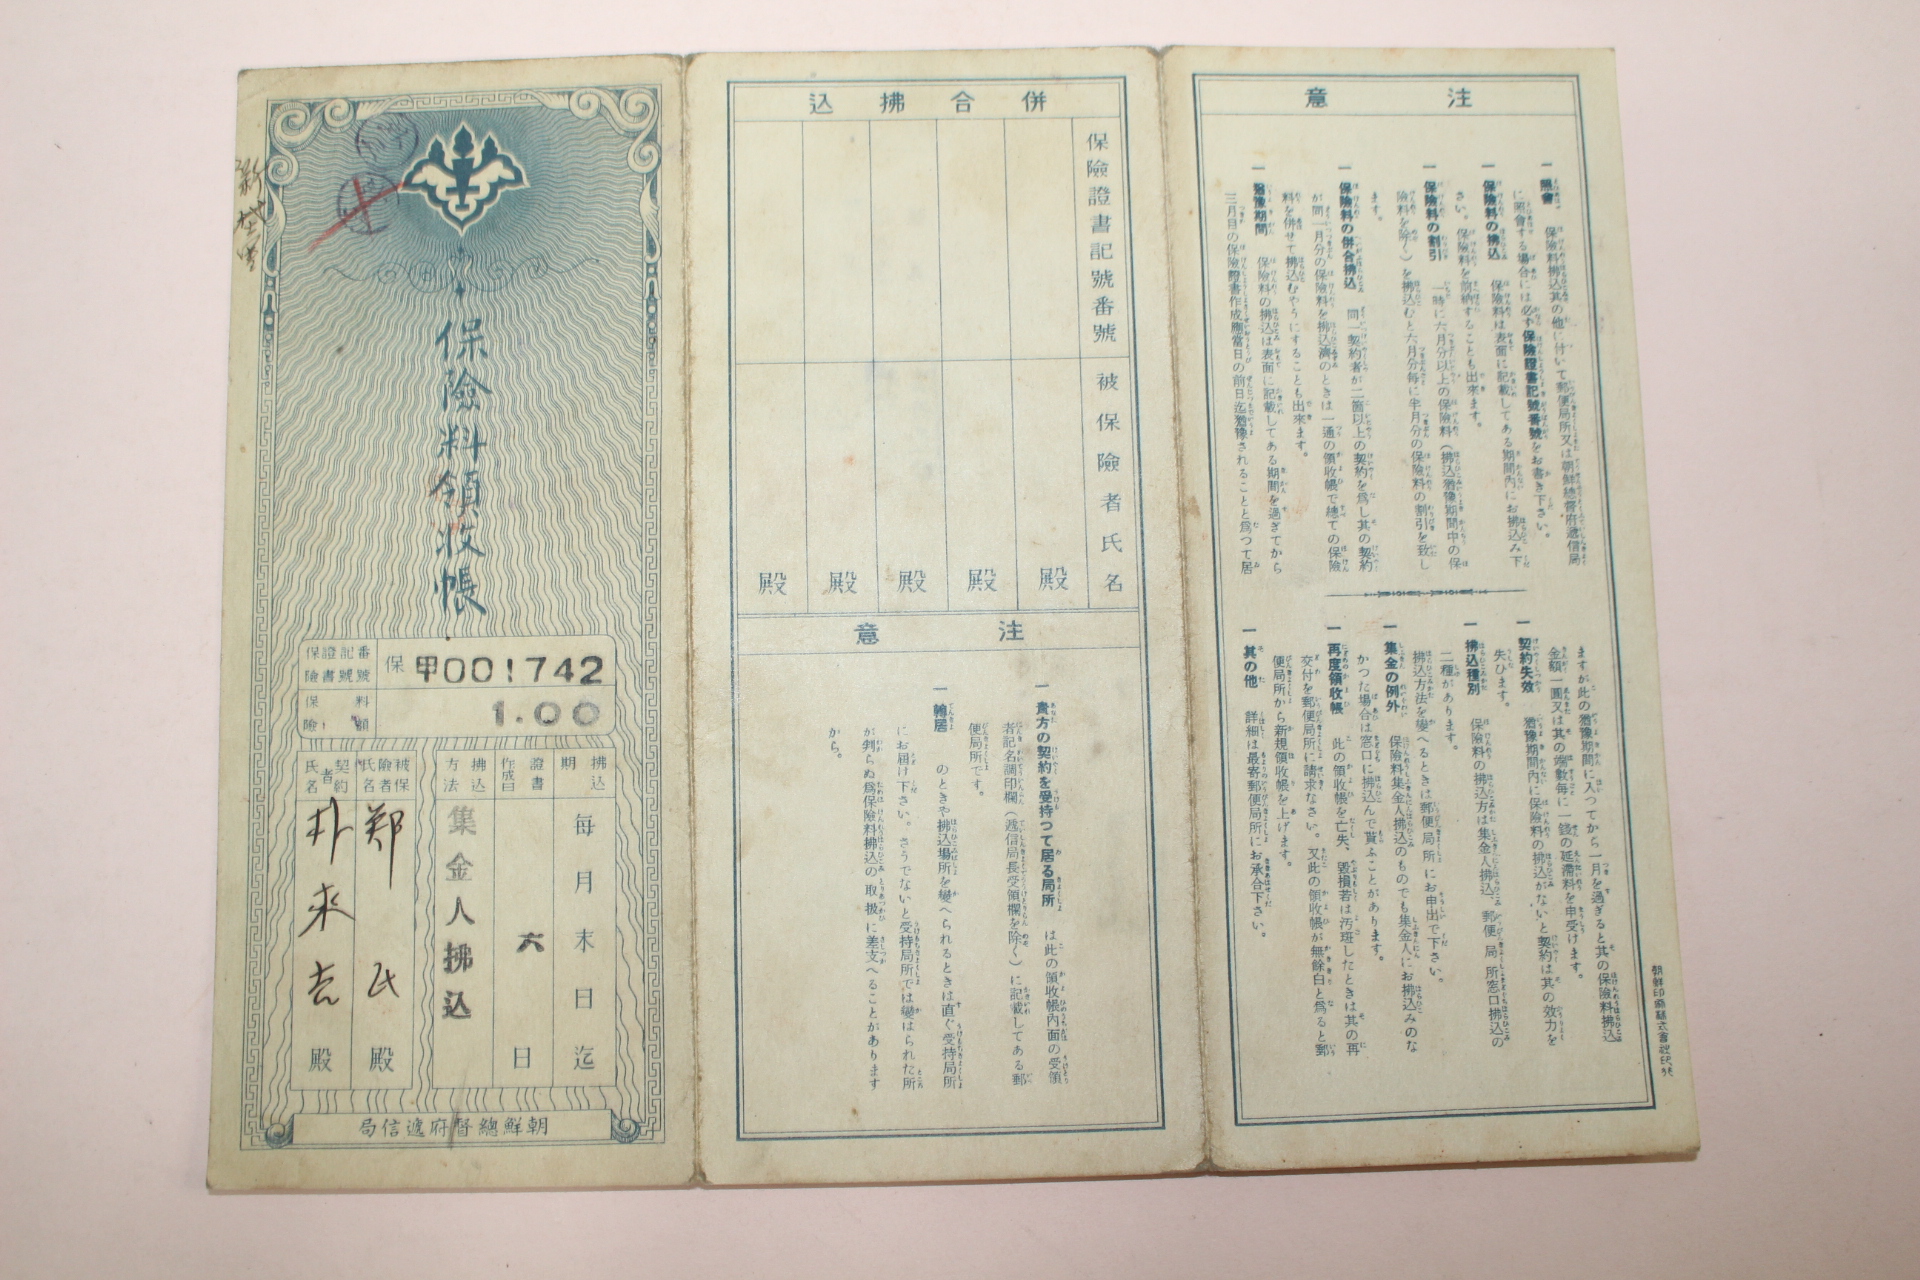 保險料領收帳
保險證書記號番號
保甲001742
保險料額
1.00
拂込期
每月末日迄
證書作成日
六日
拂込方法
集金人拂込
被保險者氏名
鄭 氏 殿
契約者氏名
朴來吉 殿
朝鮮總督府遞信局
併合拂込
保險證書記號番號
被保險者氏名
殿
殿
殿
殿
殿
注意
一 貴方の契約を受持つて居る局所 は此の領收帳內面の受領
者記名調印欄(遞信局長受領欄を除く)に記載してある郵
便局所です。
一 轉居 のときや拂込場所を變へられるときは直ぐ受持局所
にお届け下さい。さうでないと受持局所では變はられた所
が判らぬ爲保險料拂込の取扱に差支へることがあります
から。
注意
一 照會 保險料拂込其の他に付いて郵便局所又は朝鮮總督府遞信局
に照會する場合には必ず保險證書記號番號をお書き下さい。
一 保險料の拂込 保險料は表面に記載してある期間內にお拂込み下
さい。保險料を前納することも出來ます。
一 保險料の割引 一時に六月分以上の保險料(拂込猶豫期間中の保
險料を除く)を拂込むと六月分每に半月分の保險料の割引を致し
ます。
一 保險料の併合拂込 同一契約者が二箇以上の契約を爲し其の契約
が同一月分の保險料を拂込濟のときは一通の領收帳で總ての保險
料を併せて拂込むやうにすることも出來ます。
一 猶豫期間 保險料の拂込は表面に記載してある期間を過ぎてから
三月目の保險證書作成應當日の前日迄猶豫されることと爲つて居
ますが此の猶豫期間に入つてから一月を過ぎると其の保險料拂込
金額一圓又は其の端數每に一錢の延滯料を申受けます。
一 契約失效 猶豫期間內に保險料の拂込がないと契約は其の效力を
失ひます。
一 拂込種別 保險料の拂込方は集金人拂込、郵便局所窓口拂込の
二種があります。
拂込方法を變へるときは郵便局所にお申出で下さい。
一 集金の例外 保險料集金人拂込のものでも集金人にお拂込みのな
かつた場合は窓口に拂込んで貰ふことがあります。
一 再度領收帳 此の領收帳を亡失、毀損若は汚斑したときは其の再
交付を郵便局所に請求なさい。又此の領收帳が無餘白と爲ると郵
便局所から新規領收帳を上げます。
一 其の他 詳細は最寄郵便局所にお承合下さい。
朝鮮印刷株式會社印行